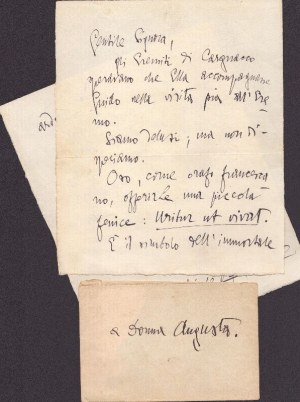 Gentile Signora,
gli Eremiti di Cargnacco
speravano che Ella accompagnasse
Guido nella visita pia all'Ere-
mo.
Siamo delusi; ma non di-
speriamo.
Oso, come orafo francesca-
no, offerirle una piccola
fenice: Uritur ut vivat.
È il simbolo dell'immortale
a Donna Augusta.